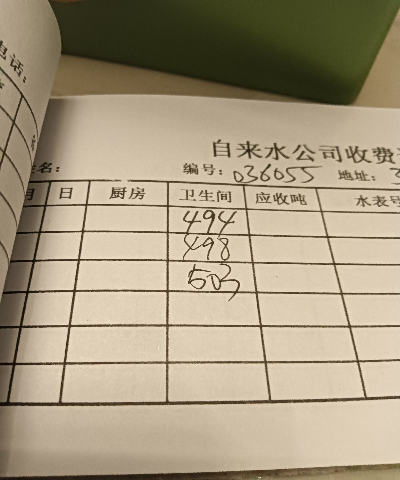 电话:
自来水公司收费
名: 编号: 036055 地址:
月 日 厨房 卫生间 应收吨 水表号
494
498
503